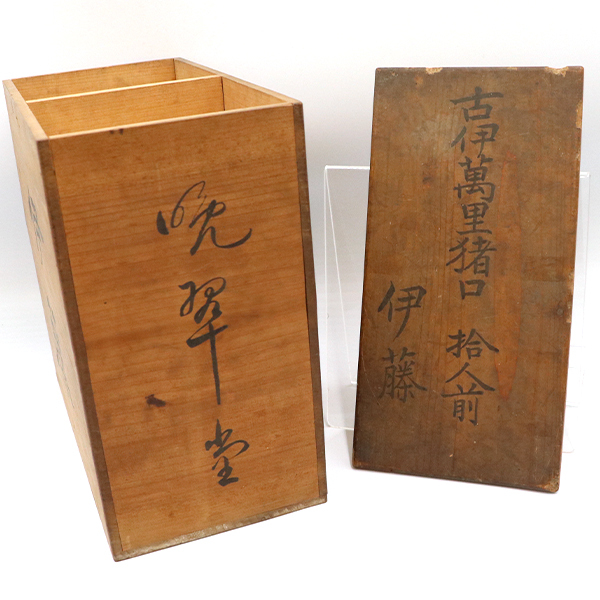 晩翠堂
古伊萬里猪口 拾人前
伊藤